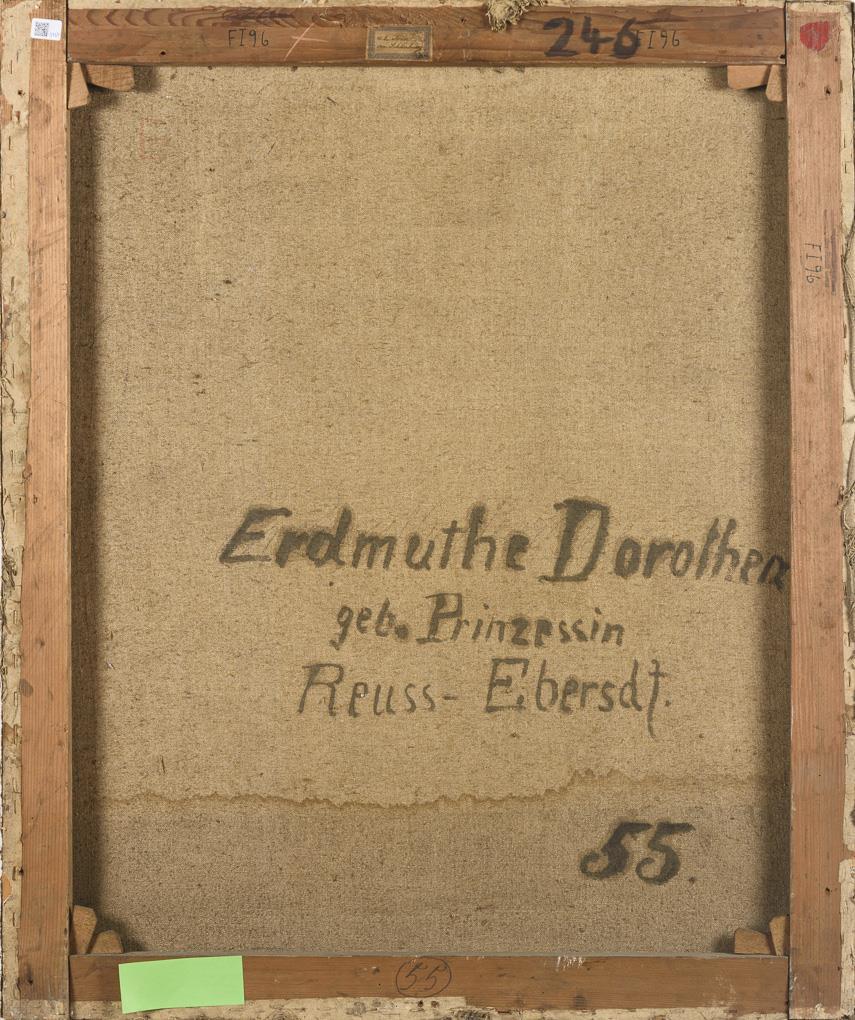 FI96
246
FI96
FI96
Erdmuthe Dorothea
geb. Prinzessin
Reuss- Ebersdt.
55.
55